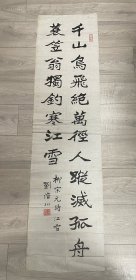 千山鳥飛絕萬徑人蹤滅孤舟
蓑笠翁獨釣寒江雪
柳宗元詩江雪